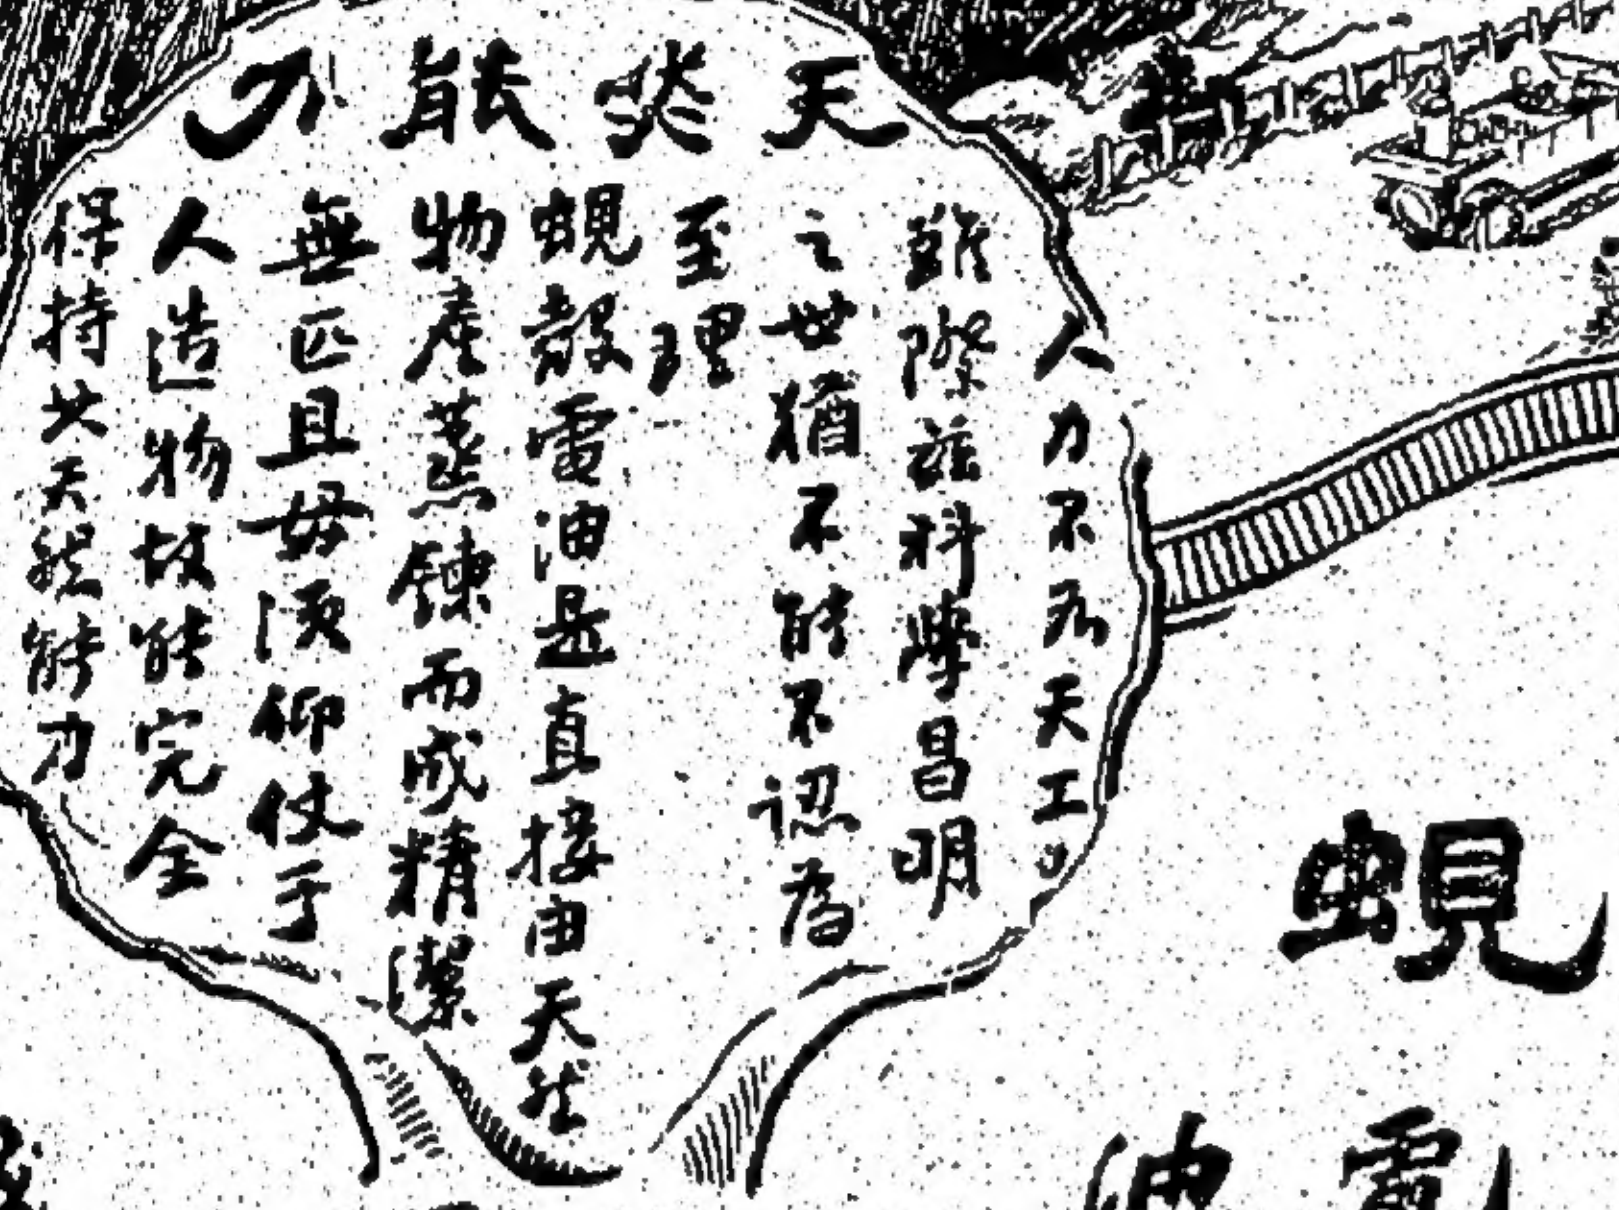 天然能力
人力不及天工
雖際茲科學昌明
之世猶不能不認為
至理
蜆殼電油是直接由天然
物產蒸鍊而成精潔
無匹且毋須仰仗于
人造物故能完全
保持其天然能力
蜆
電油